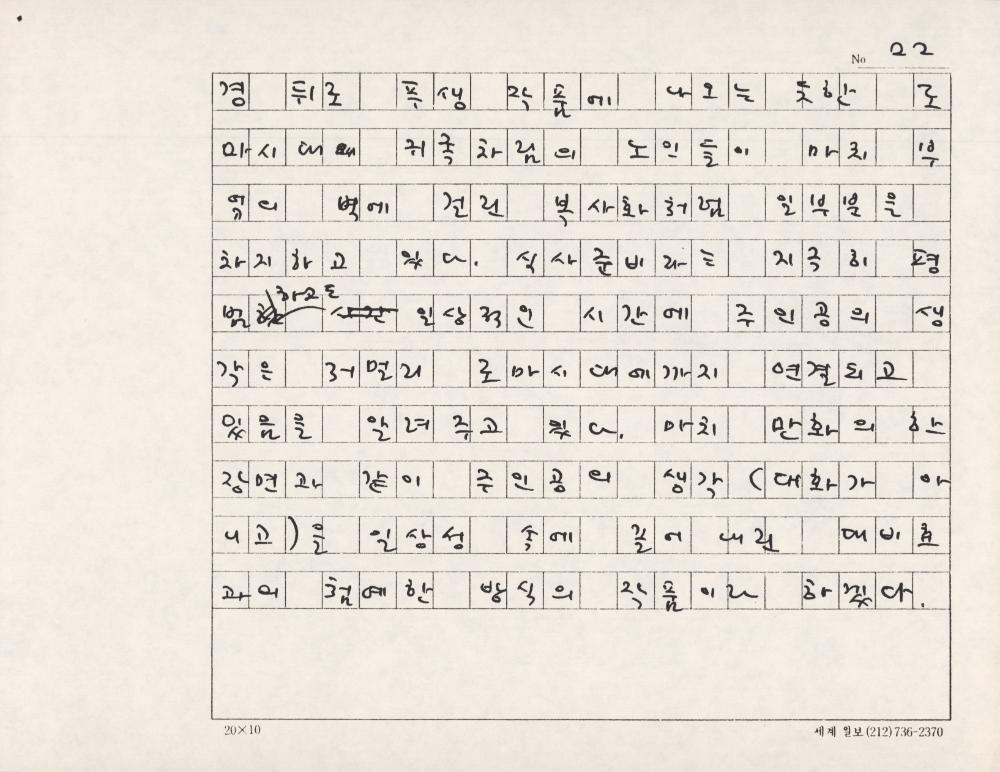 No 22
경 뒤로 폭생 작품에 나오는 듯한 로
마시대 귀족차림의 노인들이 마치 부
엌의 벽에 걸린 복사화처럼 일부분을
차지하고 있다. 식사준비라는 지극히 평
하고도
범 일상적인 시간에 주인공의 생
각은 저멀리 로마시대에까지 연결되고
있음을 알려주고 있다. 마치 만화의 한
장면과 같이 주인공의 생각(대화가 아
니고)을 일상성 속에 끌어 내린 대비효
과의 첨예한 방식의 작품이라 하겠다.
20×10
세계 일보 (212) 736-2370